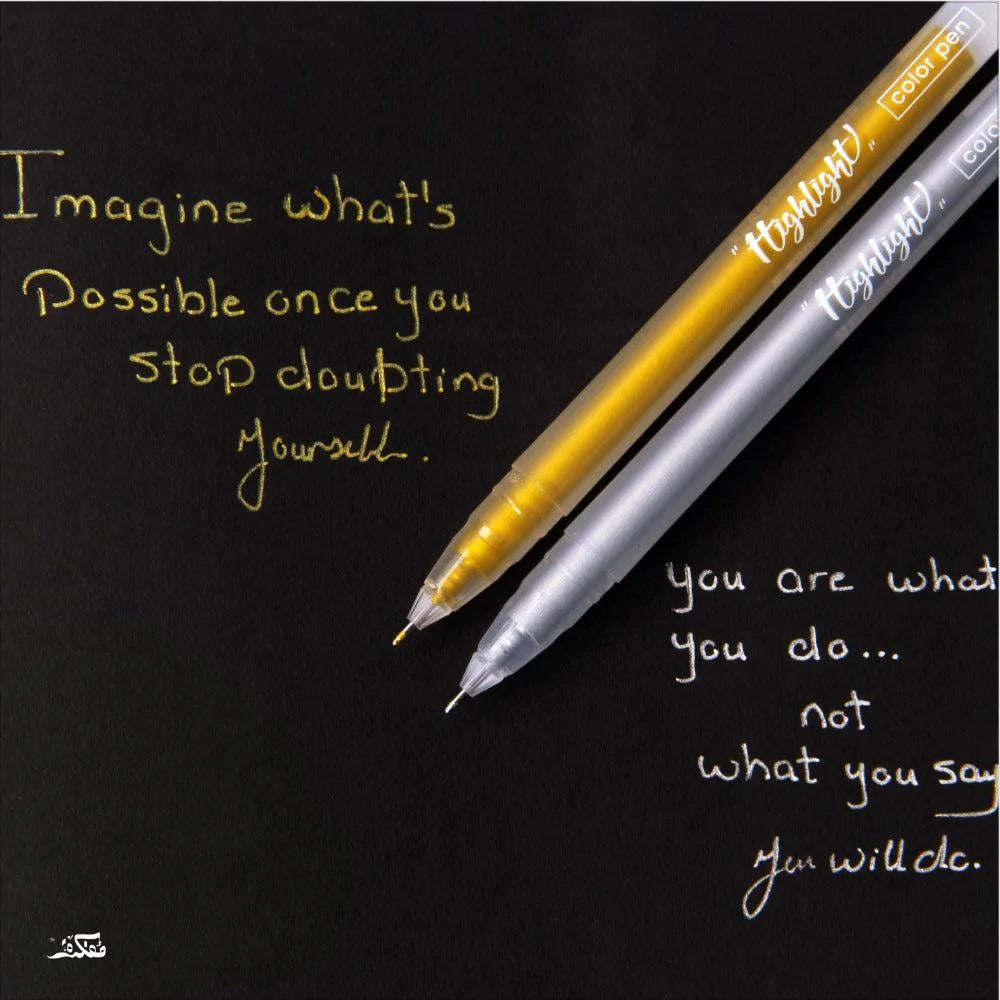 Imagine what's
Possible once you
stop doubting
yourself.
"Highlight" color pen
"Highlight" colo
you are what
you do...
not
what you say
you will do.
مفكرة